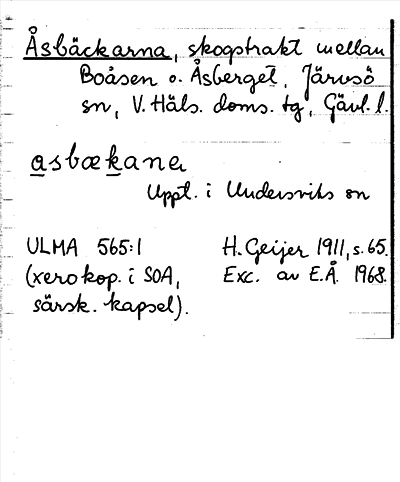 Åsbäckarna, skogstrakt mellan
Boåsen o. Åsberget, Järvsö
sn, V. Häls. doms. tg, Gävl. l.
asbækaner
Uppt. i Undersviks sn
ULMA 565:1 H. Geijer 1911, s. 65.
(xerokop. i SOA, Exc. av E.Å. 1968.
särsk. kapsel).